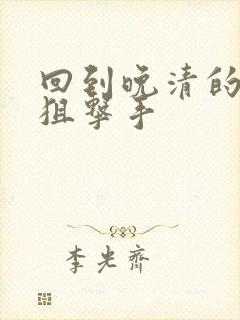 回到晚清的
狙击手
李光齐